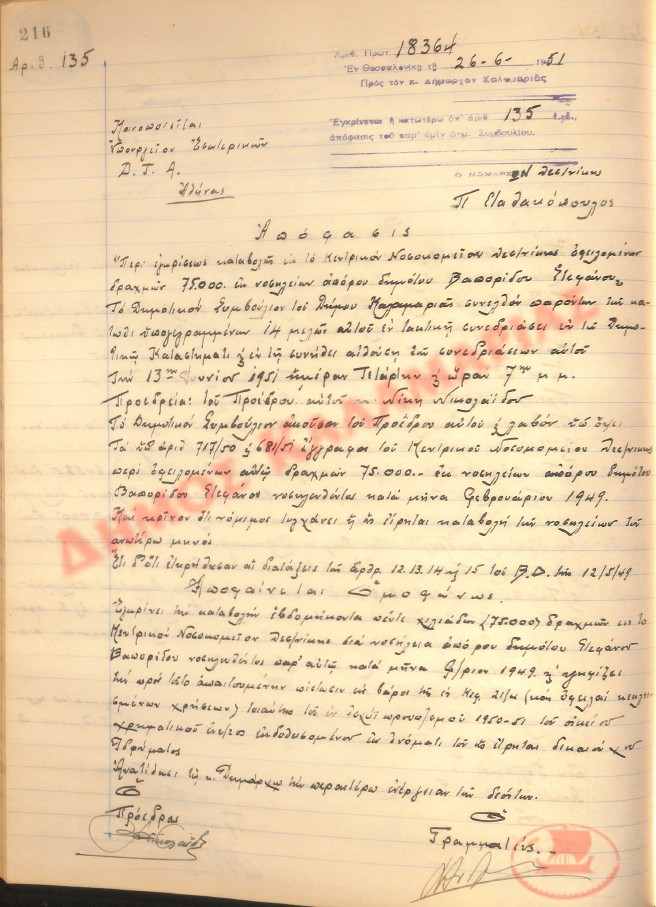 216
Αριθ. 135
Αριθ. Πρωτ. 18364
Ἐν Θεσσαλονίκῃ τῇ 26-6-1951
Πρὸς τὸν κ. Δήμαρχον Καλαμαριᾶς
Ἐγκρίνεται ἡ κατωτέρω ὑπ' ἀριθ. 135 ἐ.ἔ.
ἀπόφασις τοῦ παρ' ὑμῖν Δημ. Συμβουλίου.
Ο ΝΟΜΑΡΧΗΣ Θεσ/νίκης
Κοινοποιεῖται
Ὑπουργεῖον Ἐσωτερικῶν
Δ. Τ. Α.
Ἀθήνας
Ἀπόφασις
"Περὶ ἐγκρίσεως καταβολῆς εἰς τὸ Κεντρικὸν Νοσοκομεῖον Θεσ/νίκης ὀφειλομένων
δραχμῶν 75.000 ἐκ νοσηλείων ἀπόρου δημότου Βαπορίδου Στεφάνου"
Τὸ Δημοτικὸν Συμβούλιον τοῦ Δήμου Καλαμαριᾶς συνελθὸν παρόντων τῶν κά-
τωθι ὑπογεγραμμένων 14 μελῶν αὐτοῦ ἐν τακτικῇ συνεδριάσει ἐν τῷ Δημο-
τικῷ Καταστήματι & ἐν τῇ συνήθει αἰθούσῃ τῶν συνεδριάσεων αὐτοῦ
Τὴν 13ην Ἰουνίου 1951 ἡμέραν Τετάρτην & ὥραν 7ην μ.μ.
Προεδρεία: τοῦ Προέδρου αὐτοῦ κ. Νίκη Νικολαΐδου
Τὸ Δημοτικὸν Συμβούλιον ἀκοῦσαν τοῦ Προέδρου αὐτοῦ & λαβὸν ὑπ' ὄψει
Τὰ ὑπ' ἀριθ 717/50 & 681/51 ἔγγραφα τοῦ Κεντρικοῦ Νοσοκομείου Θεσ/νίκης
περὶ ὀφειλομένων αὐτῷ δραχμῶν 75.000.- ἐκ νοσηλείων ἀπόρου δημότου
Βαπορίδου Στεφάνου νοσηλευθέντος κατὰ μῆνα Φεβρουάριον 1949.
Καὶ κρῖνον ὅτι νόμιμος τυγχάνει ἡ ὡς εἴρηται καταβολὴ τῶν νοσηλείων τοῦ
ἀνωτέρω μηνός
Ἔτι δ' ὅτι ἐτηρήθησαν αἱ διατάξεις τῶν ἄρθρ. 12.13.14 & 15 τοῦ Β.Δ. τῆς 12/5/49
Ἀποφαίνεται Ὁμοφώνως
Ἐγκρίνει τὴν καταβολὴν ἑβδομήκοντα πέντε χιλιάδων (75.000) δραχμῶν εἰς τὸ
Κεντρικὸν Νοσοκομεῖον Θεσ/νίκης διὰ νοσήλεια ἀπόρου δημότου Στεφάνου
Βαπορίδου νοσηλευθέντος παρ' αὐτῷ κατὰ μῆνα Φ/ριον 1949 & ψηφίζει
τὴν πρὸς τοῦτο ἀπαιτουμένην πίστωσιν εἰς βάρος τῆς ἐν Κεφ. 21/α
χρήσεων) τοιαύτης τοῦ ἐν ἰσχύϊ προϋπ/σμοῦ 1950-51 τοῦ οἰκείου
χρηματικοῦ ἐν/τος ἐκδοθησομένου ἐν ὀνόματι τοῦ ὡς εἴρηται δικαιούχου
Ἱδρύματος
Ἀνατίθησι τῷ κ. Δημάρχῳ τὴν περαιτέρω ἐνέργειαν τῶν δεόντων.
Ὁ
Πρόεδρος
Ὁ
Γραμματεὺς
ΔΗΜΟΣ ΚΑΛΑΜΑΡΙΑΣ